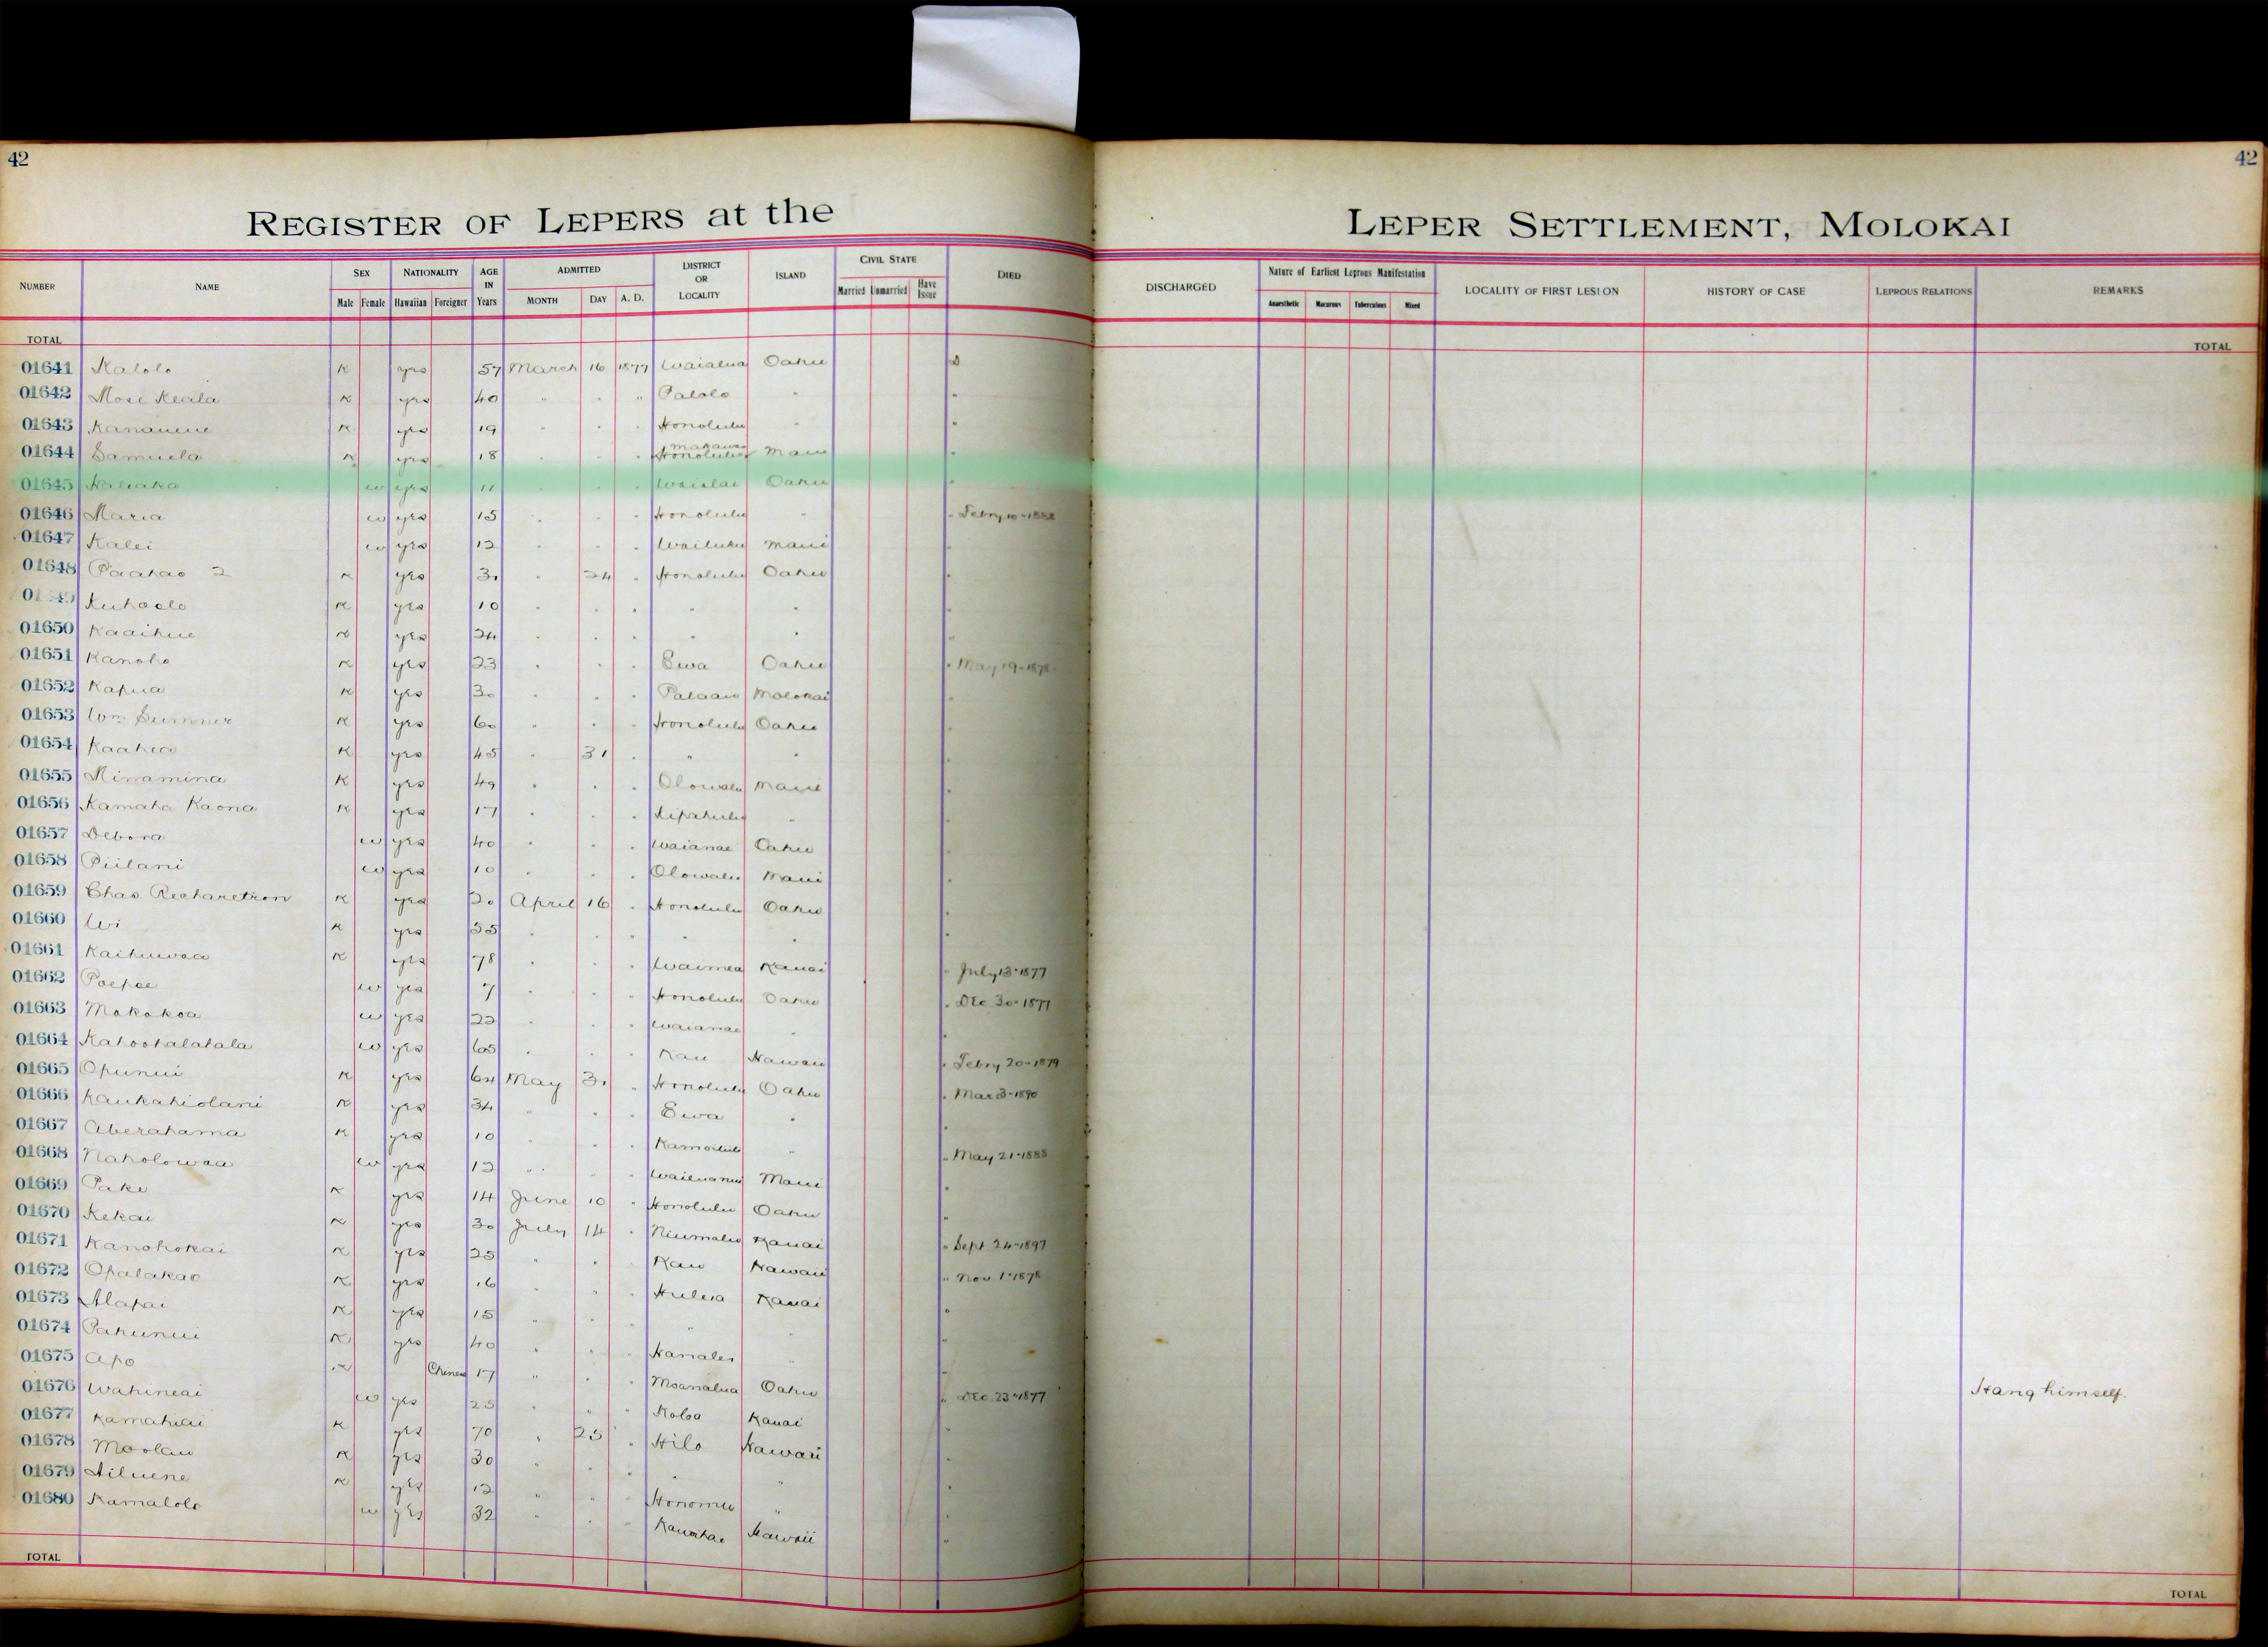 42
42
REGISTER OF LEPERS at the
LEPER SETTLEMENT, MOLOKAI
NUMBER NAME SEX NATIONALITY AGE IN Years ADMITTED DISTRICT OR LOCALITY ISLAND CIVIL STATE DIED DISCHARGED Nature of Earliest Leprous Manifestation LOCALITY OF FIRST LESION HISTORY OF CASE LEPROUS RELATIONS REMARKS
Male Female Hawaiian Foreigner MONTH DAY A. D. Married Unmarried Have Issue Anaesthetic Macurous Tuberculous Mixed
TOTAL TOTAL
01641 Kalolo K yes 57 March 16 1877 Waialua Oahu D
01642 Mose Keala K yes 40 " " " Palolo " "
01643 K yes 19 " " " Honolulu " "
01644 Samuela K yes 18 " " " Makawao Honolulu Maui "
01645 w yes 11 " " " Waialae Oahu "
01646 Maria w yes 15 " " " Honolulu " " Febry 10-1888
01647 Kalei w yes 12 " " " Wailuku Maui "
01648 Paahao 2 K yes 30 " 24 " Honolulu Oahu "
Kuhaelo K yes 10 " " " " " "
01650 Kaaihue K yes 24 " " " " " "
01651 Kanoho K yes 23 " " " Ewa Oahu " May 19-1878
01652 Kapua K yes 30 " " " Palaau Molokai "
01653 Wm Sumner K yes 60 " " " Honolulu Oahu "
01654 Kaahea K yes 45 " 31 " " " "
01655 Minamina K yes 49 " " " Olowalu Maui "
01656 Kamaha Kaona K yes 17 " " " Kipahulu " "
01657 Debora w yes 40 " " " Waianae Oahu "
01658 Piilani w yes 10 " " " Olowalu Maui "
01659 Chas yes 20 April 16 " Honolulu Oahu "
01660 Wi K yes 35 " " " " " "
01661 Kaihuwaa K yes 78 " " " Waimea Kauai " July 13-1877
01662 Poepoe w yes 7 " " " Honolulu Oahu " Dec 30-1877
01663 Makakoa w yes 22 " " " Waianae " "
01664 Kahoohalahala w yes 65 " " " Kau Hawaii " Febry 20-1879
01665 Opunui K yes 64 May 31 " Honolulu Oahu " Mar 3-1890
01666 Kaukahiolani K yes 34 " " " Ewa " "
01667 Aberahama K yes 10 " " " Kamoiliili " " May 21-1888
01668 Naholowaa w yes 12 " " " Wailuanui Maui "
01669 Pake K yes 14 June 10 " Honolulu Oahu "
01670 Kekai K yes 30 July 14 " Niumalu Kauai " Sept 24-1897
01671 Kanohokai K yes 25 " " " Kau Hawaii " Nov 1-1878
01672 Opalakao K yes 16 " " " Huleia Kauai "
01673 Alapai K yes 15 " " " " " "
01674 Pahunui K yes 40 " " " Hanalei " "
01675 Apo K Chinese 17 " " " Moanalua Oahu " Dec 23-1877 Hang himself.
01676 Wahineai w yes 25 " " " Koloa Kauai "
01677 Kamahiai K yes 70 " 25 " Hilo Hawaii "
01678 Moolau K yes 30 " " " " " "
01679 K yes 12 " " " Honomu " "
01680 Kamalolo w yes 32 " " " Kawaihae Hawaii "
TOTAL TOTAL